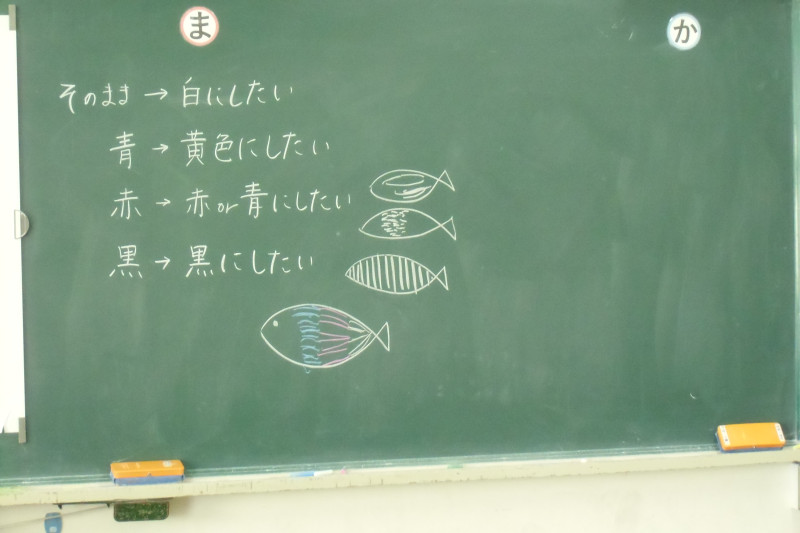 ま
か
そのまま→白にしたい
青→黄色にしたい
赤→赤or青にしたい
黒→黒にしたい